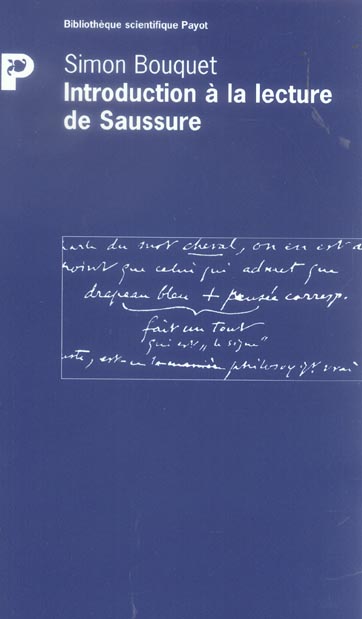 Bibliothèque scientifique Payot
P
Simon Bouquet
Introduction à la lecture
de Saussure
du mot cheval, on en est a
point que celui qui admet que
drapeau bleu + pensée corresp.
fait un tout
qui est „le signe"
est-ce